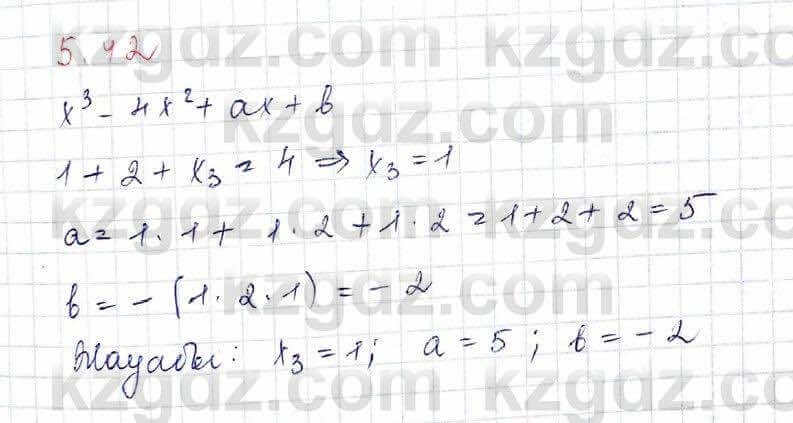 5.42
x³ - 4x² + ax + b
1 + 2 + x₃ = 4 ⇒ x₃ = 1
a = 1·1 + 1·2 + 1·2 = 1 + 2 + 2 = 5
b = - (1·2·1) = - 2
Жауабы: x₃ = 1; a = 5; b = - 2
kzgdz.com kzgdz.com
kzgdz.com kzgdz.com
kzgdz.com kzgdz.com
kzgdz.com
kzgdz.com kzgdz.com